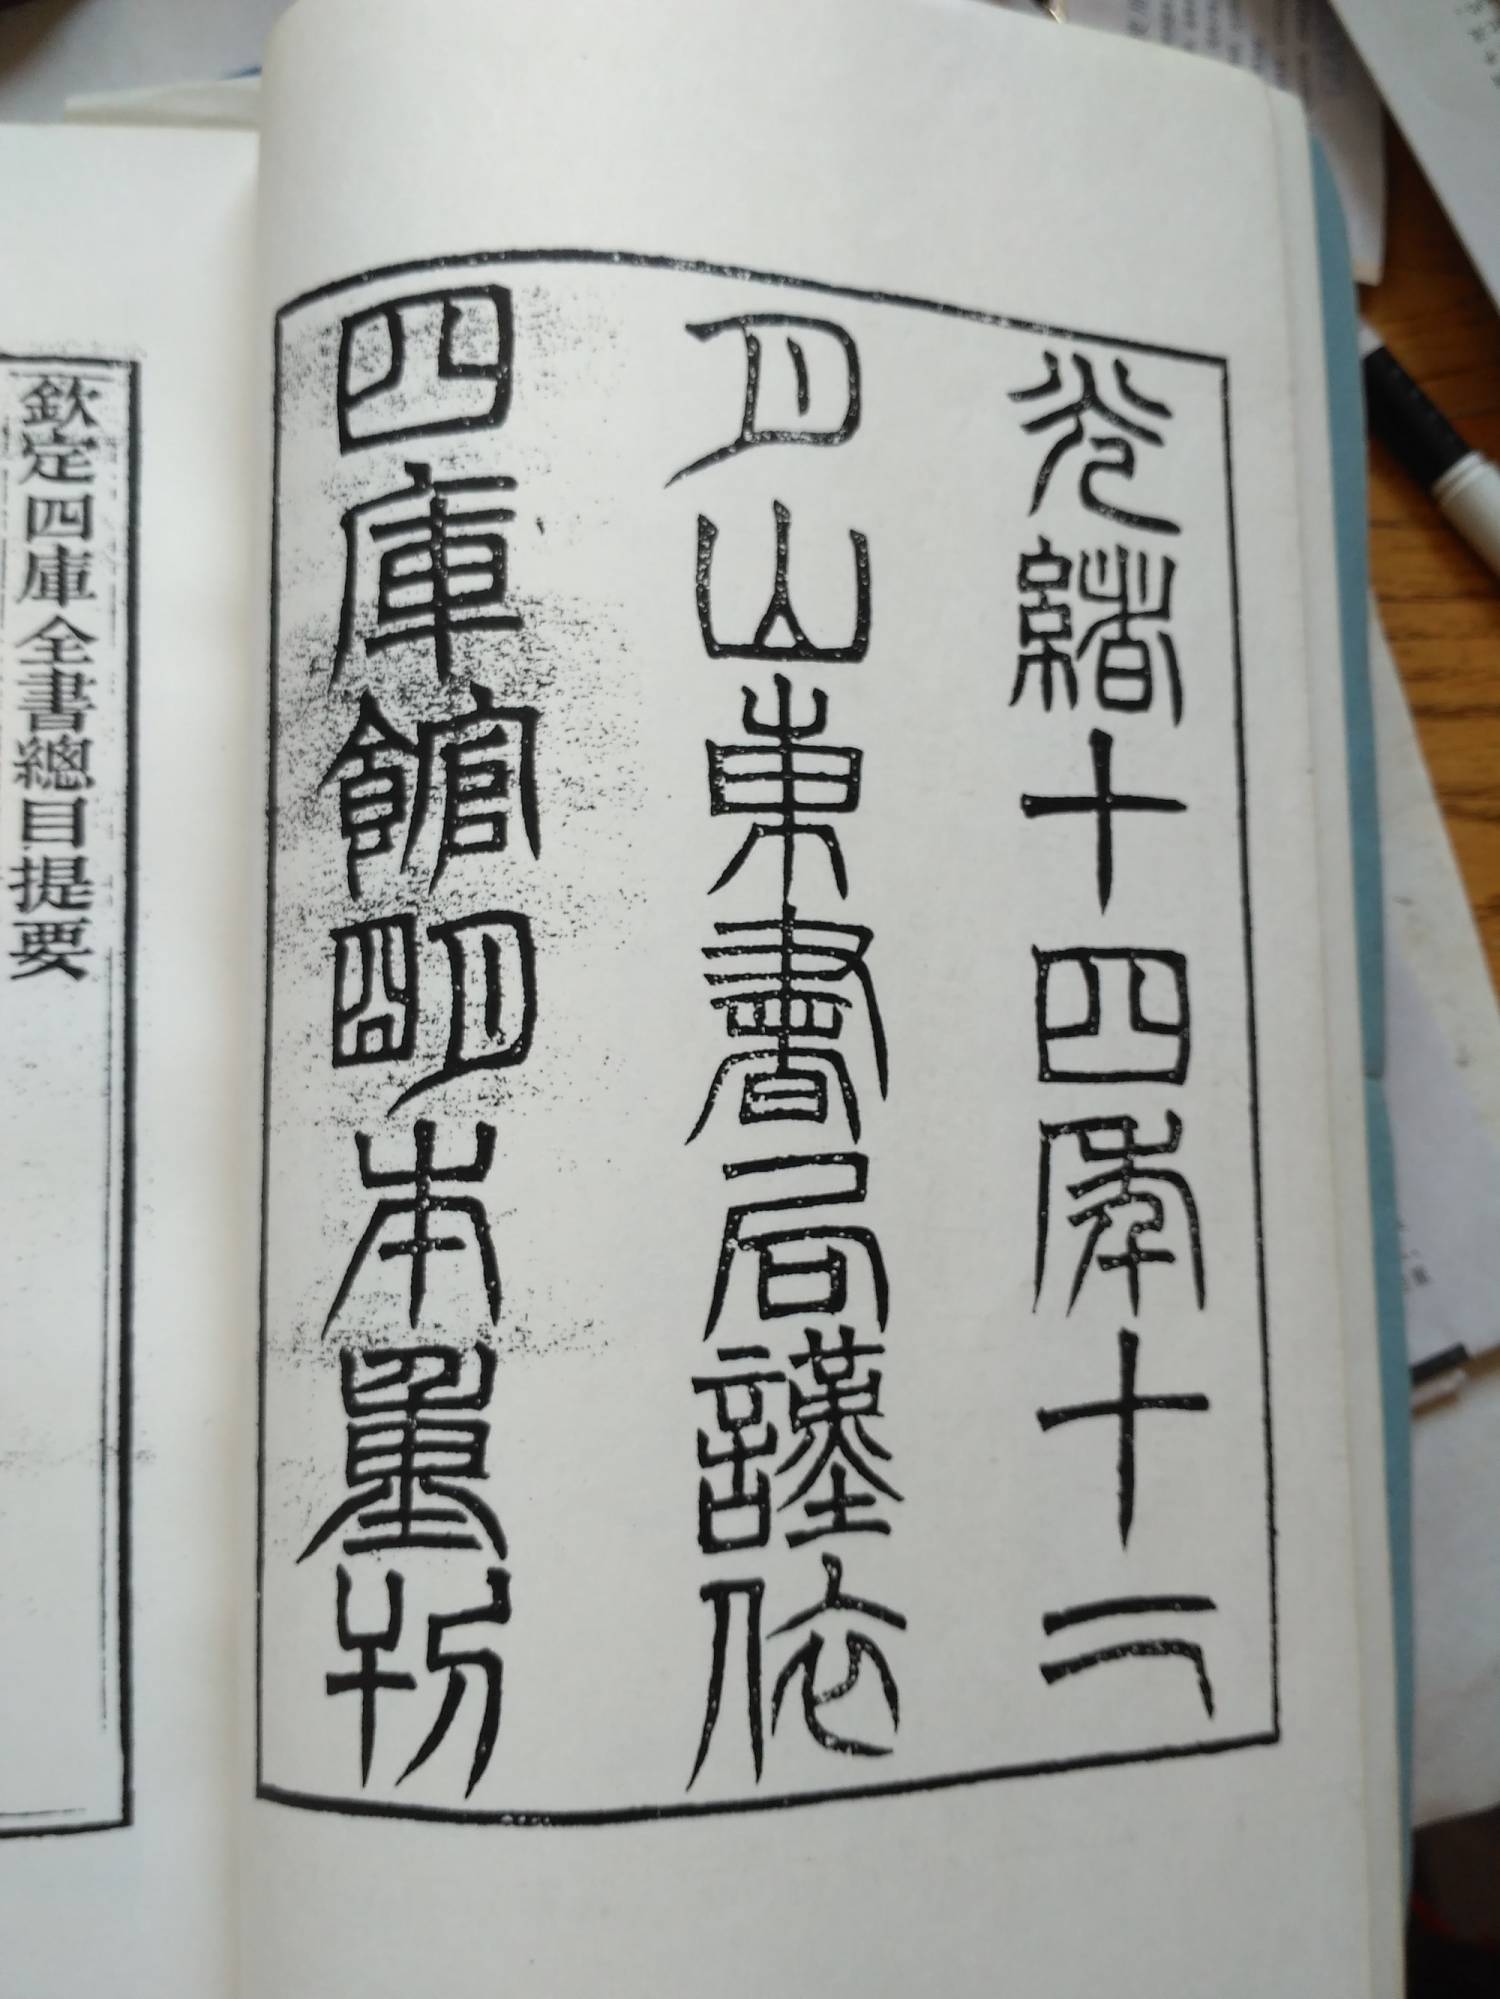 光緒十四年十二
月山東書局謹依
四庫館明本重刊
欽定四庫全書總目提要